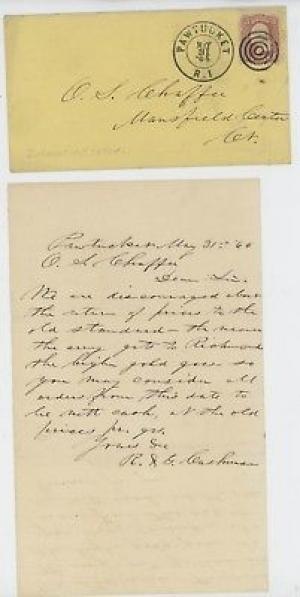 PAWTUCKET
MAY
31
R.I.
O. S. Chaffee
Mansfield Center
Ct.
Pawtucket May 31st '64
O. S. Chaffee
Dear Sir.
We are discouraged about
the return of prices to the
old standard – the nearer
the army gets to Richmond
the higher gold goes so
you may consider all
orders from this date to
be nett cash, at the old
prices per gr.
Yours &c
R. & G. Cushman